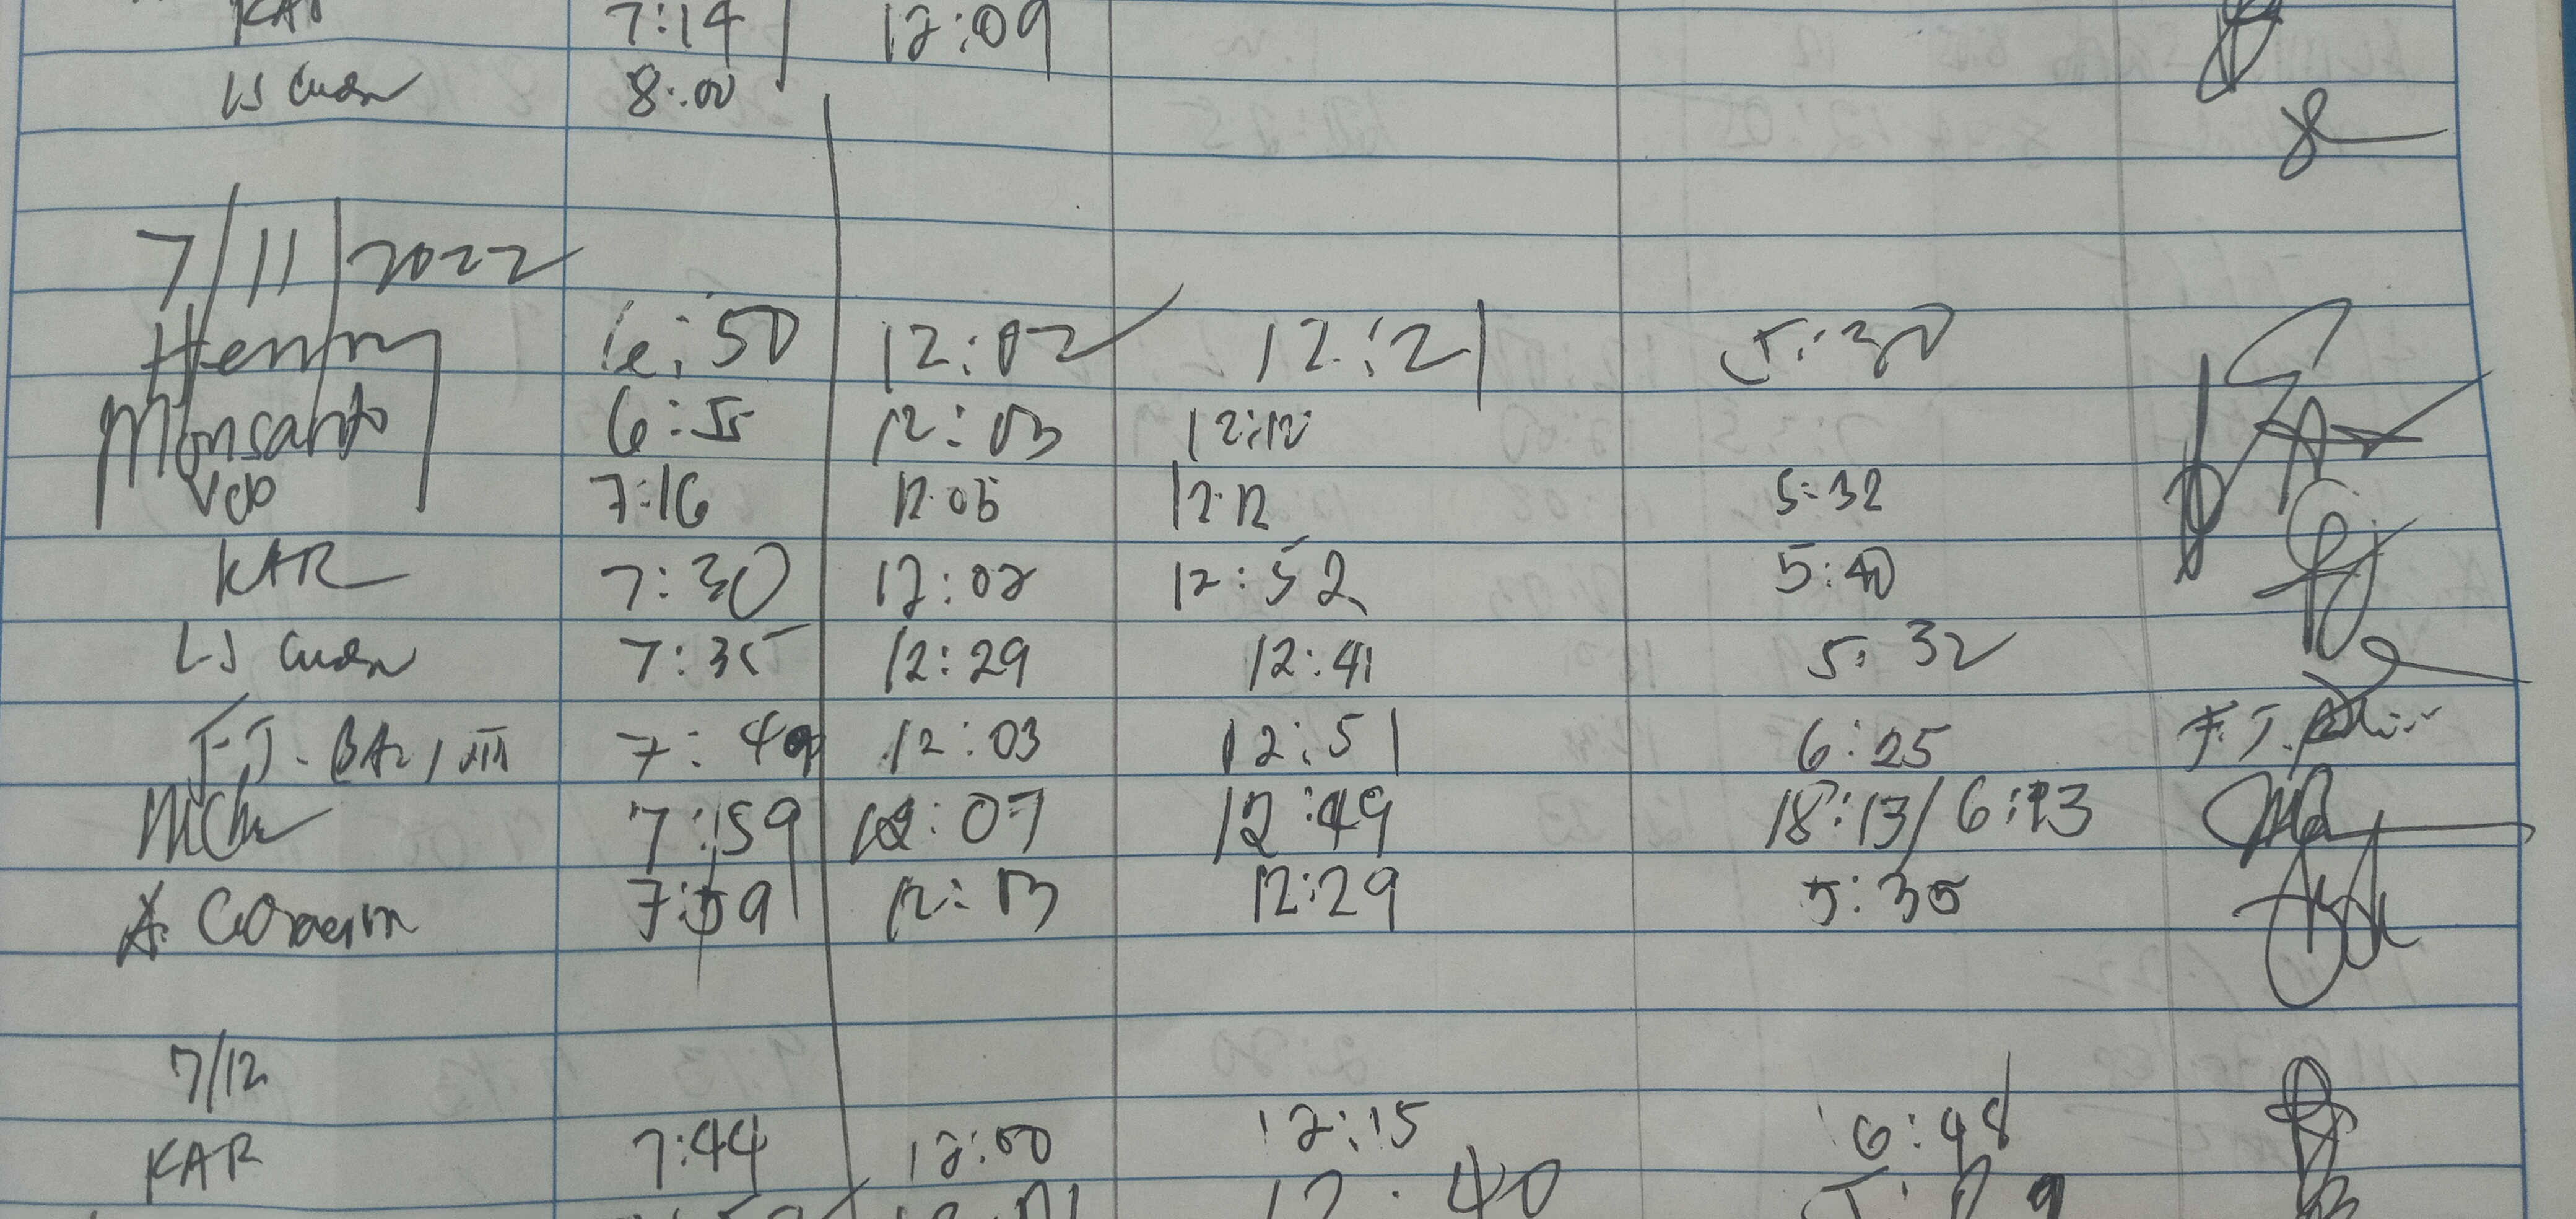 KAR 7:14 12:09
LJ Cuen 8:00
7/11/2022
Henry 6:50 12:02 12:21 5:30
Monsanto 6:55 12:03 12:12
VCO 7:16 12:05 12:12 5:32
KAR 7:30 12:02 12:52 5:40
LJ Cuen 7:35 12:29 12:41 5:32
F.J. 7:49 12:03 12:51 6:25 F.J.
7:59 12:07 12:49 18:13/6:13
A. 7:59 12:13 12:29 5:35
7/12
KAR 7:44 12:00 12:15 6:48
12:40